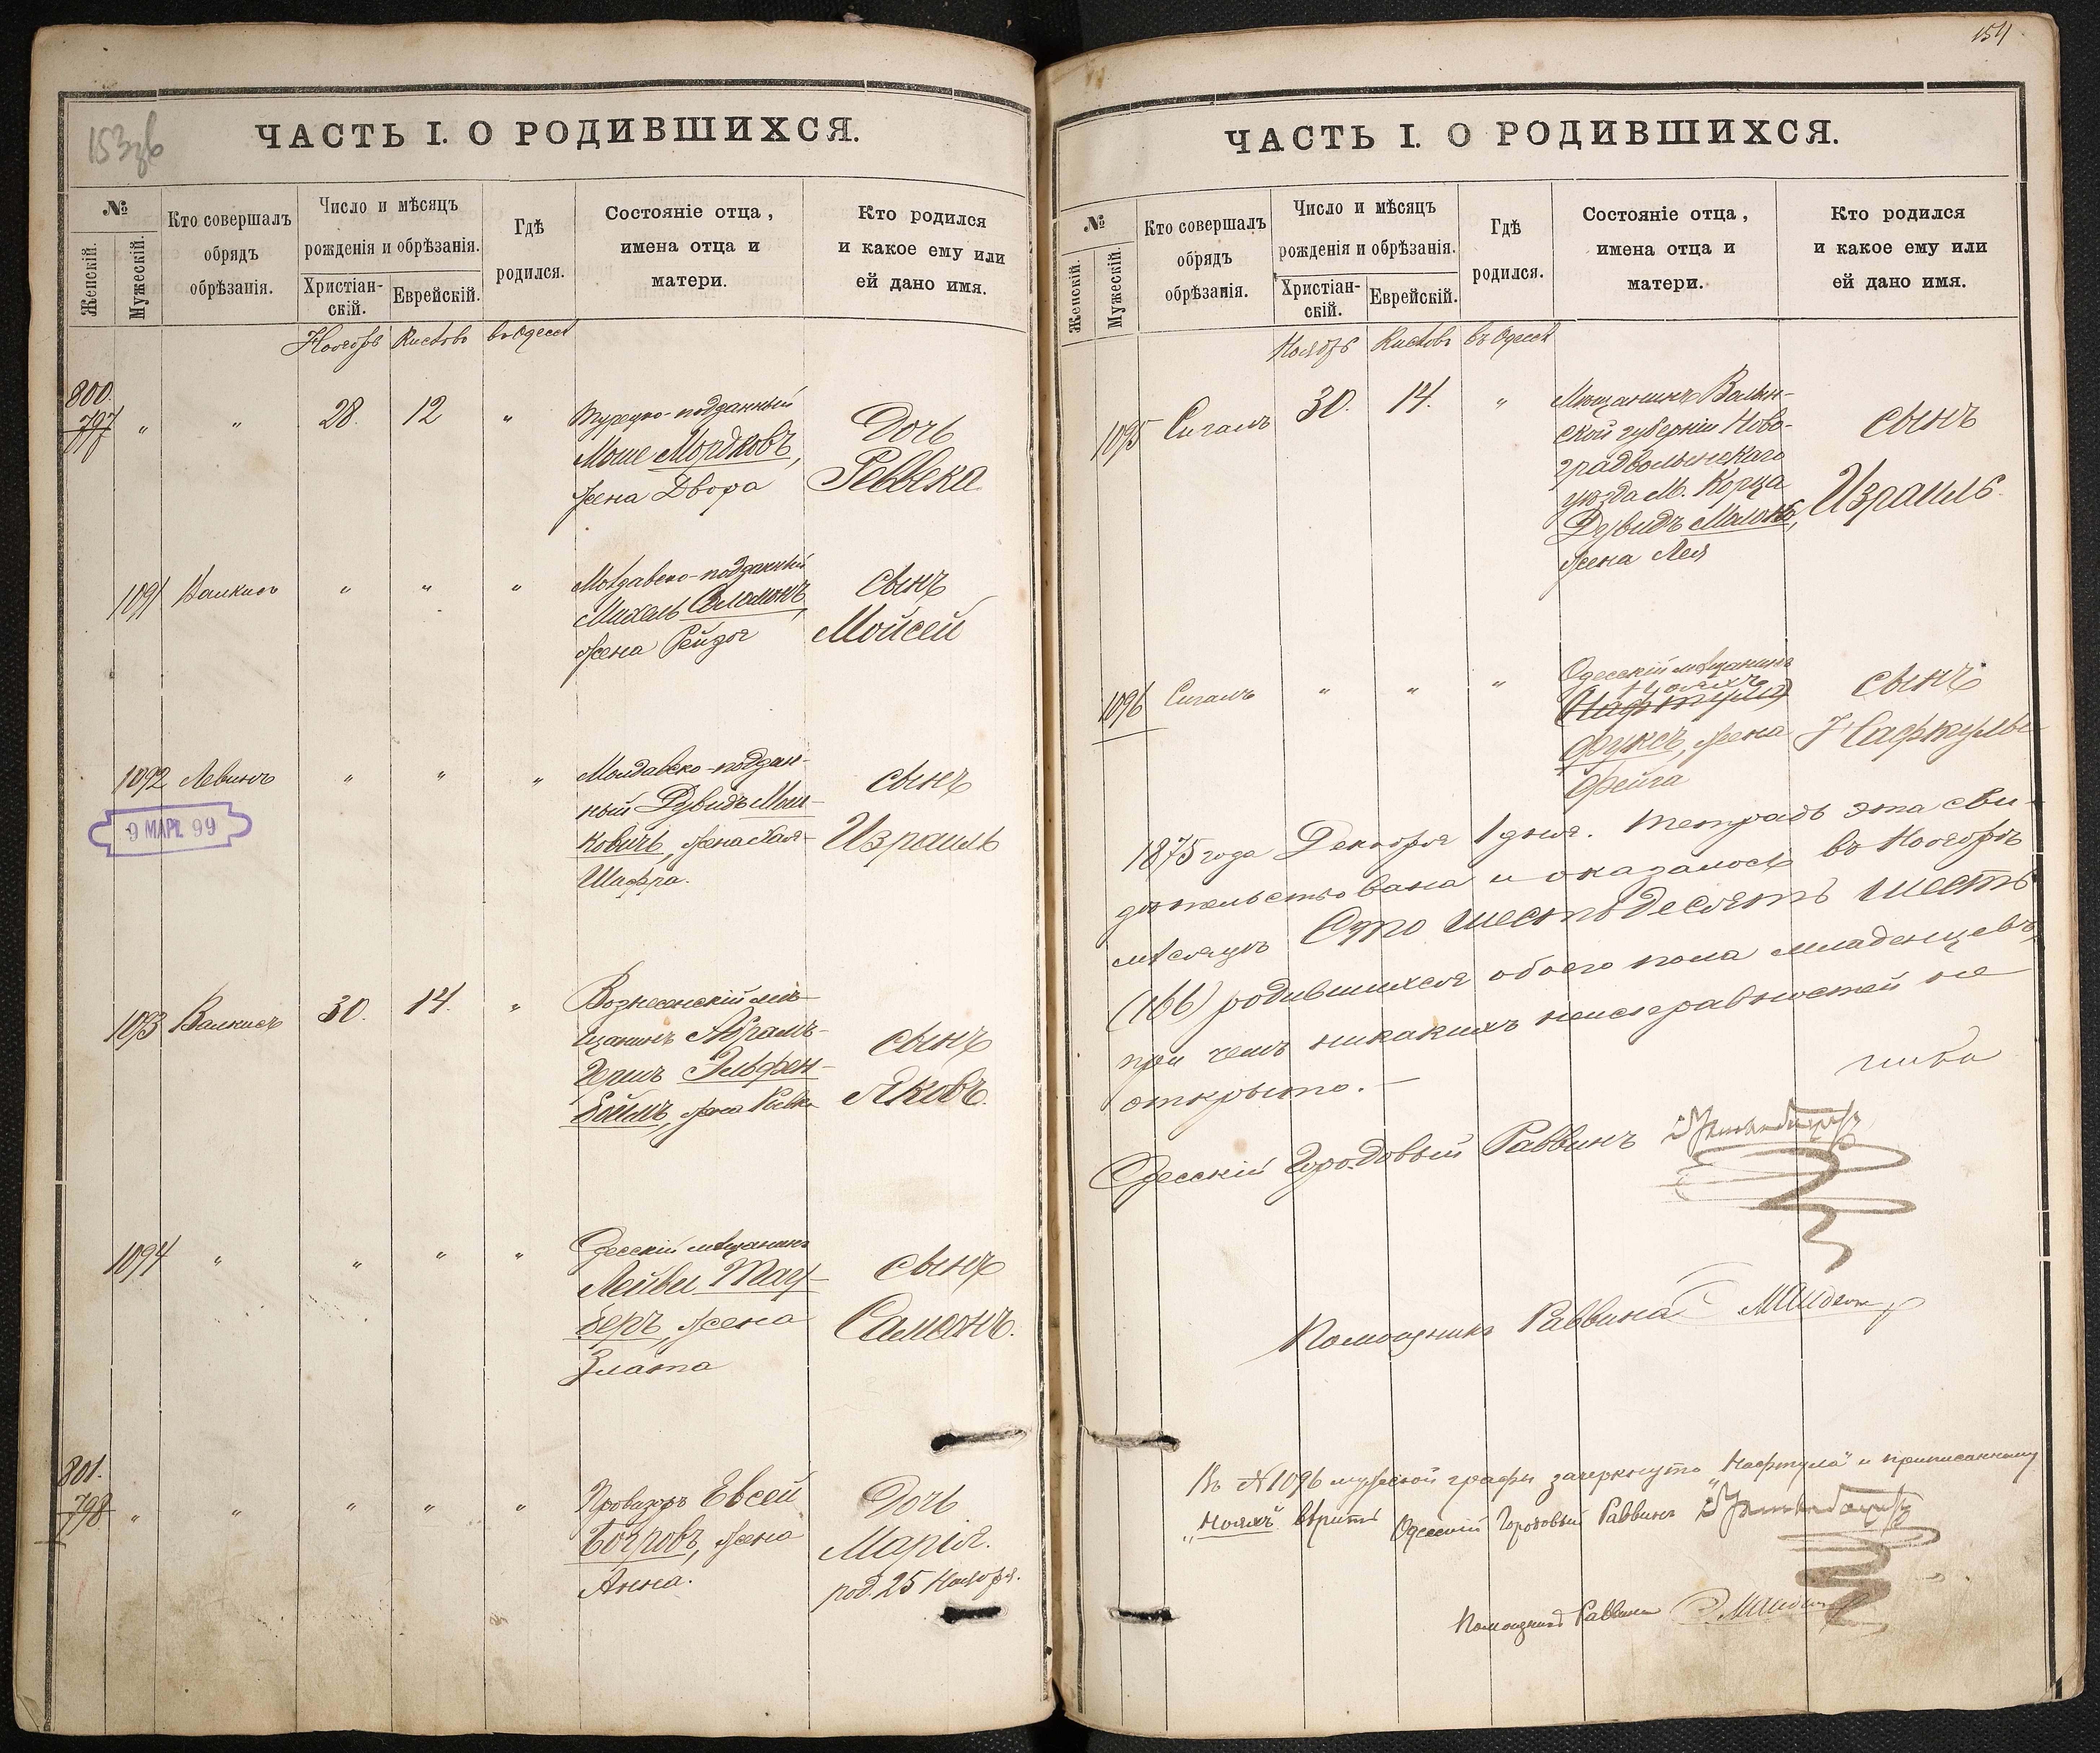 153зв
ЧАСТЬ I. О РОДИВШИХСЯ.
№
Женскій.
Мужескій.
Кто совершалъ
обрядъ
обрѣзанія.
Число и мѣсяцъ
рожденія и обрѣзанія.
Христіан-
скій.
Еврейскій.
Гдѣ
родился.
Состояніе отца,
имена отца и
матери.
Кто родился
и какое ему или
ей дано имя.
Ноябрь Кислевъ въ Одессѣ
800.
797 " " 28. 12 "
Турецко-подданный
Моше Мордковъ,
жена Двора
Дочь
Реввека
1091 Валкисъ " " "
Молдавско-подданный
Михель Соломонъ,
жена Рейзя
сынъ
Мойсей
1092 Левинъ " " "
Молдавско-поддан-
ный Дувидъ Мош-
ковичъ, жена Хая-
Шифра.
сынъ
Израиль
9 МАР. 99
1093 Валкисъ 30. 14. "
Вознесенскій мѣ-
щанинъ Абрамъ-
Хаимъ Эльфен-
беймъ, жена Ривка
сынъ
Яковъ.
1094 " " " "
Одесскій мѣщанинъ
Лейви Тау-
беръ, жена
Злата
сынъ
Самсонъ.
801.
798 " " " " "
Провизоръ Евсей
Богровъ, жена
Анна.
Дочь
Марія.
род. 25 Ноября.
154
ЧАСТЬ I. О РОДИВШИХСЯ.
№
Женскій.
Мужескій.
Кто совершалъ
обрядъ
обрѣзанія.
Число и мѣсяцъ
рожденія и обрѣзанія.
Христіан-
скій.
Еврейскій.
Гдѣ
родился.
Состояніе отца,
имена отца и
матери.
Кто родился
и какое ему или
ей дано имя.
Ноябрь Кислевъ въ Одессѣ
1095 Сигалъ 30. 14. "
Мѣщанинъ Волын-
ской губерніи Ново-
градволынскаго
уѣзда М. Корца
Дувидъ
жена Лея
сынъ
Израиль.
1096 Сигалъ " " "
Одесскій мѣщанинъ
Ноахъ
Нафтула
Фуксъ, жена
Фейга
сынъ
Нафтулы
1875 года Декабря 1 дня. Тетрадь эта сви-
дѣтельствована и оказалось въ Ноябрѣ
мѣсяцѣ Сто шестьдесятъ шесть
(166) родившихся обоего пола младенцевъ,
при чемъ никакихъ неисправностей не
открыто. —
Одесскій Городовый Раввинъ
Помощникъ Раввина
Въ №1096 мужеской графы зачеркнуто „Нафтула" и приписанному
„Ноахъ" вѣрить Одесскій Городовый Раввинъ
Помощникъ Раввина